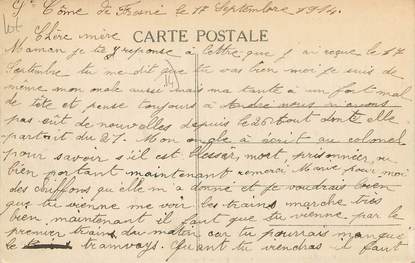 St Côme de Fresné le 17 Septembre 1914.
Chère mère
CARTE POSTALE
Maman je te reponse à lettre que j ai reçue le 17
Septembre tu me dit que tu vas bien moi je suis de
même mon oncle aussi mais ma tante à un fort mal
de tête et pense toujours à André nous n'avons
pas eut de nouvelles depuis le 26 Aout dont elle
partait du 27. Mon oncle à écrit au colonel
pour savoir s'il est blesser, mort, prisonnier, ou
bien portant maintenant remerci Marie pour moi
des chiffons qu'elle m'a donné et je voudrais bien
que tu vienne me voir les trains marche très
bien, maintenant il faut que tu vienne par le
premier train du matin car tu pourrais manqué
le tramways. Quant tu viendras il faut